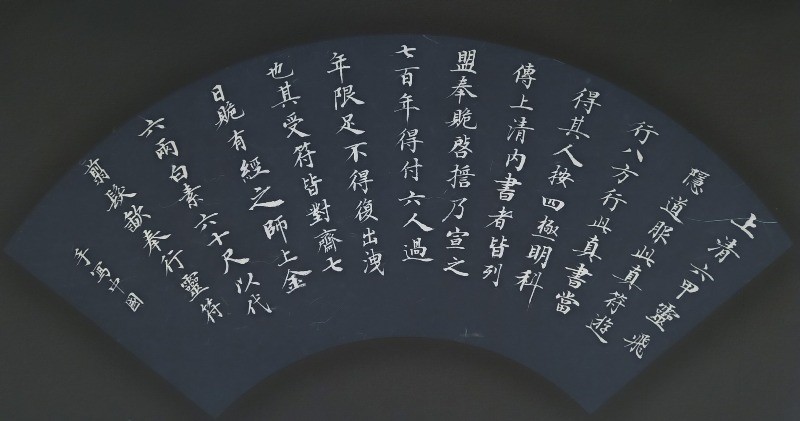 上清六甲靈飛
隱道服此真符遊
行八方行此真書當
得其人按四極明科
傳上清内書者皆列
盟奉䞈啓擔乃宣之
七百年得付六人過
年限足不得復出洩
也其受符皆對齋七
日䞈有經之師上金
六兩白素六十尺以代
翦髮歃奉行靈符
手寫中國